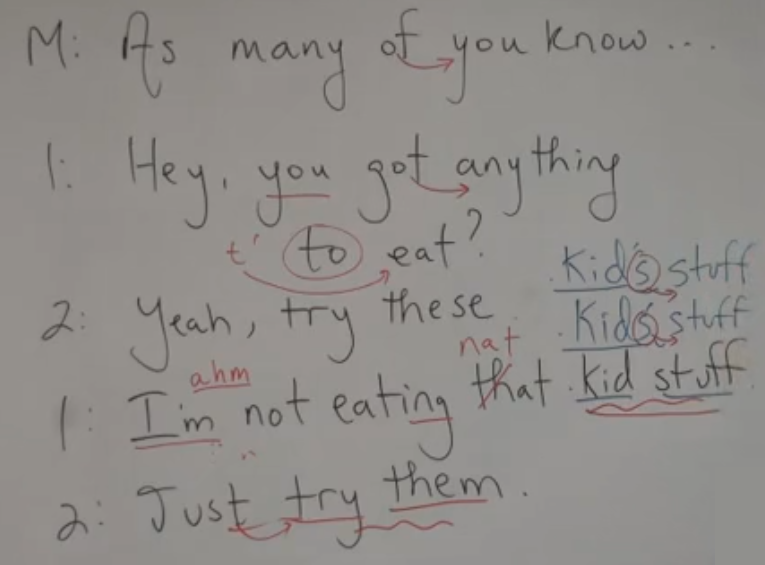 M: As many of you know...
1: Hey, you got anything
t' to eat?
Kid's stuff
2: Yeah, try these
Kids stuff
nat
ahm
1: I'm not eating that kid stuff
2: Just try them.